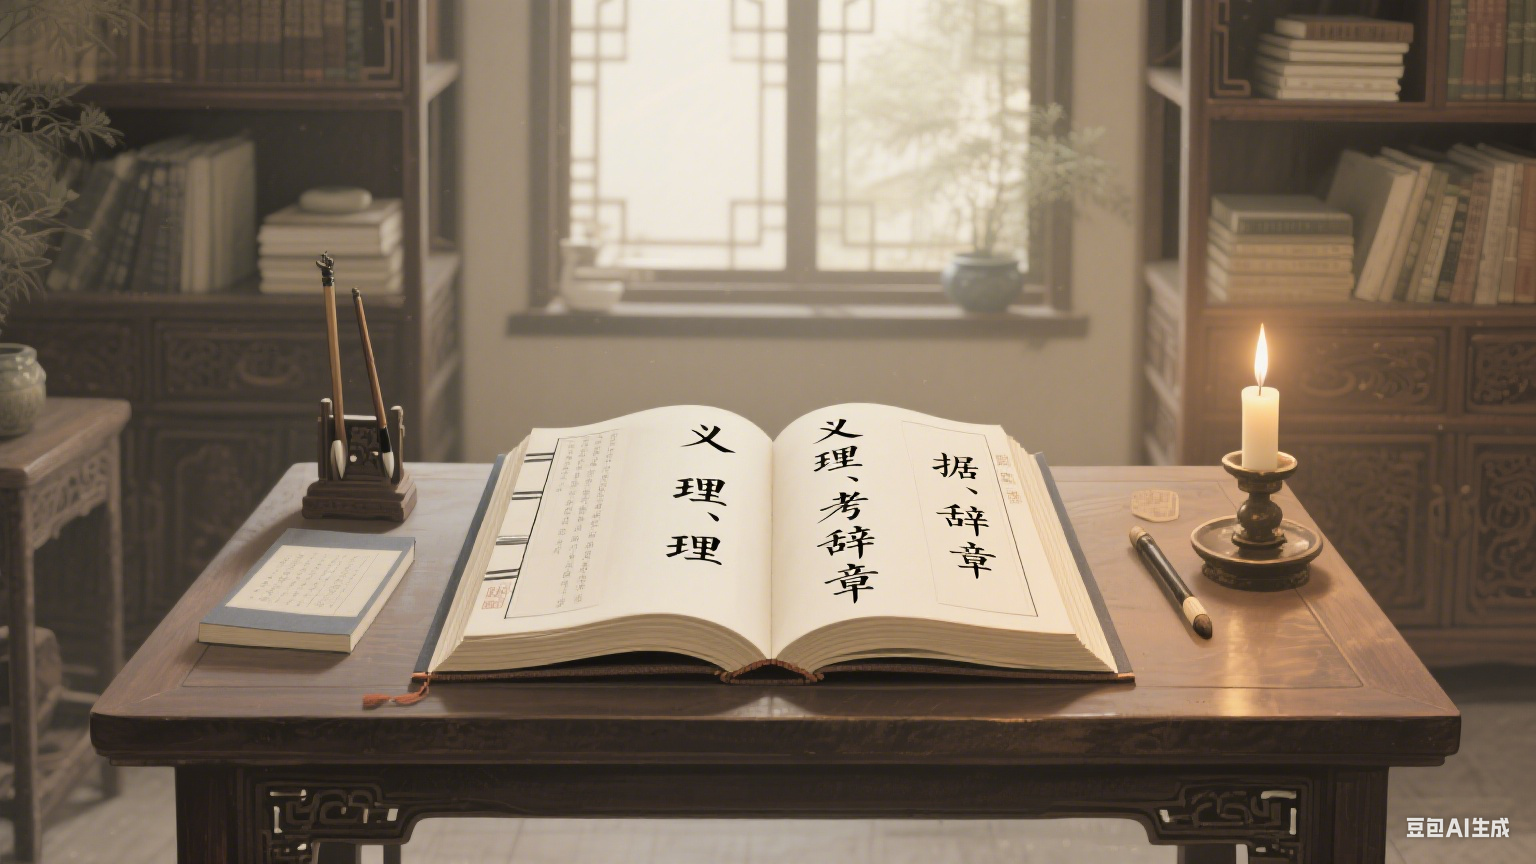 义理、理
义理、考辞章
据、辞章
豆包AI生成